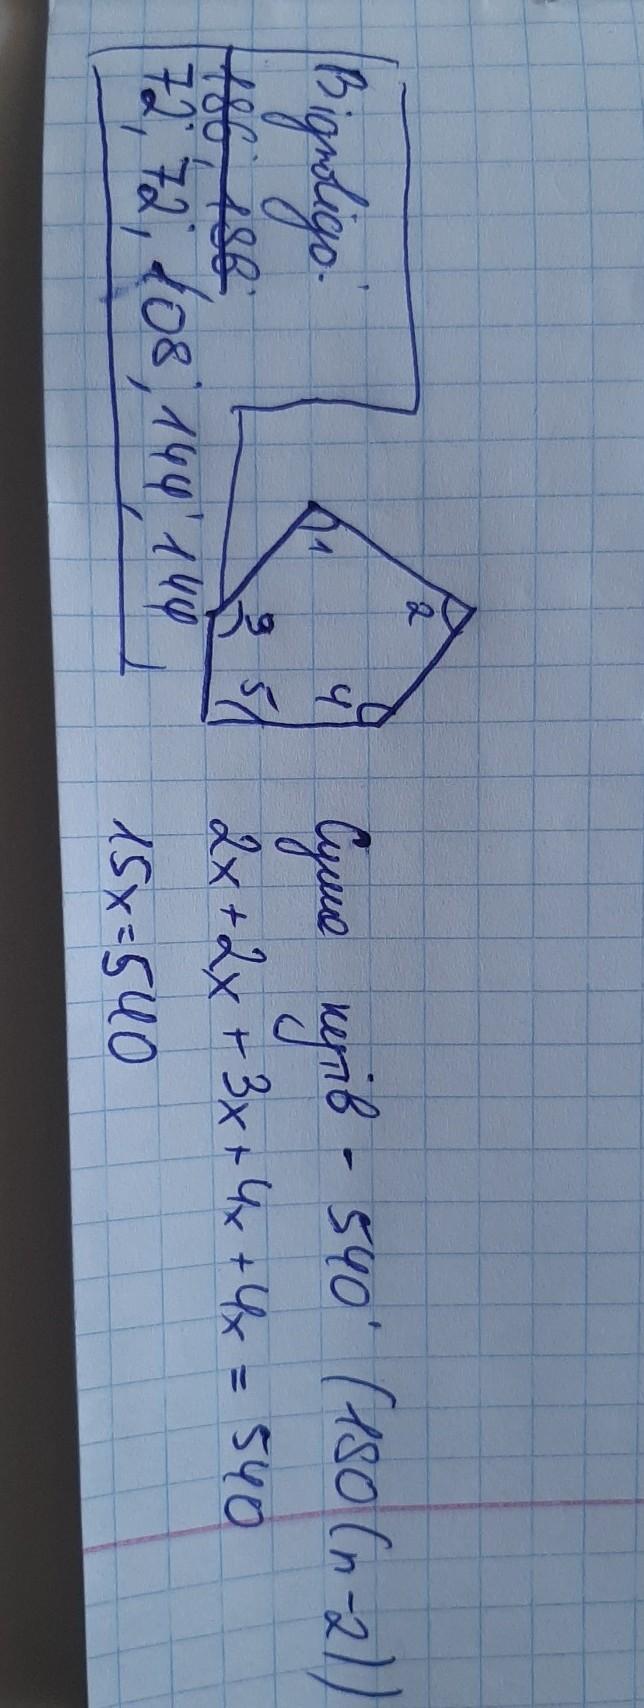 Сума кутів - 540° (180(n-2))
2x + 2x + 3x + 4x + 4x = 540
15x = 540
1
2
3
4
5
Відповідь:
72°, 72°, 108°, 144°, 144